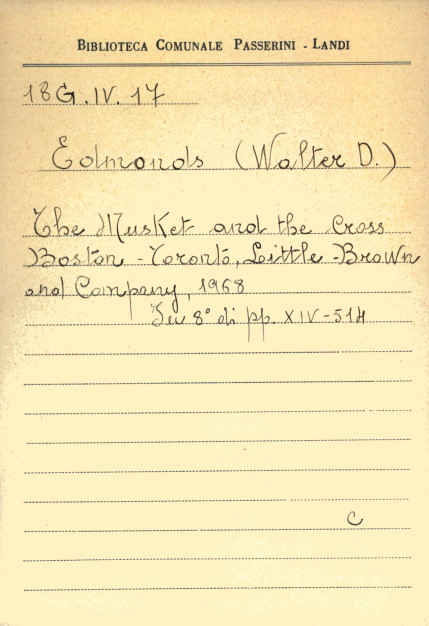 BIBLIOTECA COMUNALE PASSERINI - LANDI
18G.IV.17
Edmonds (Walter D.)
The Musket and the Cross
Boston - Toronto, Little - Brown
and Company, 1968
In 8° di pp. XIV-514
C